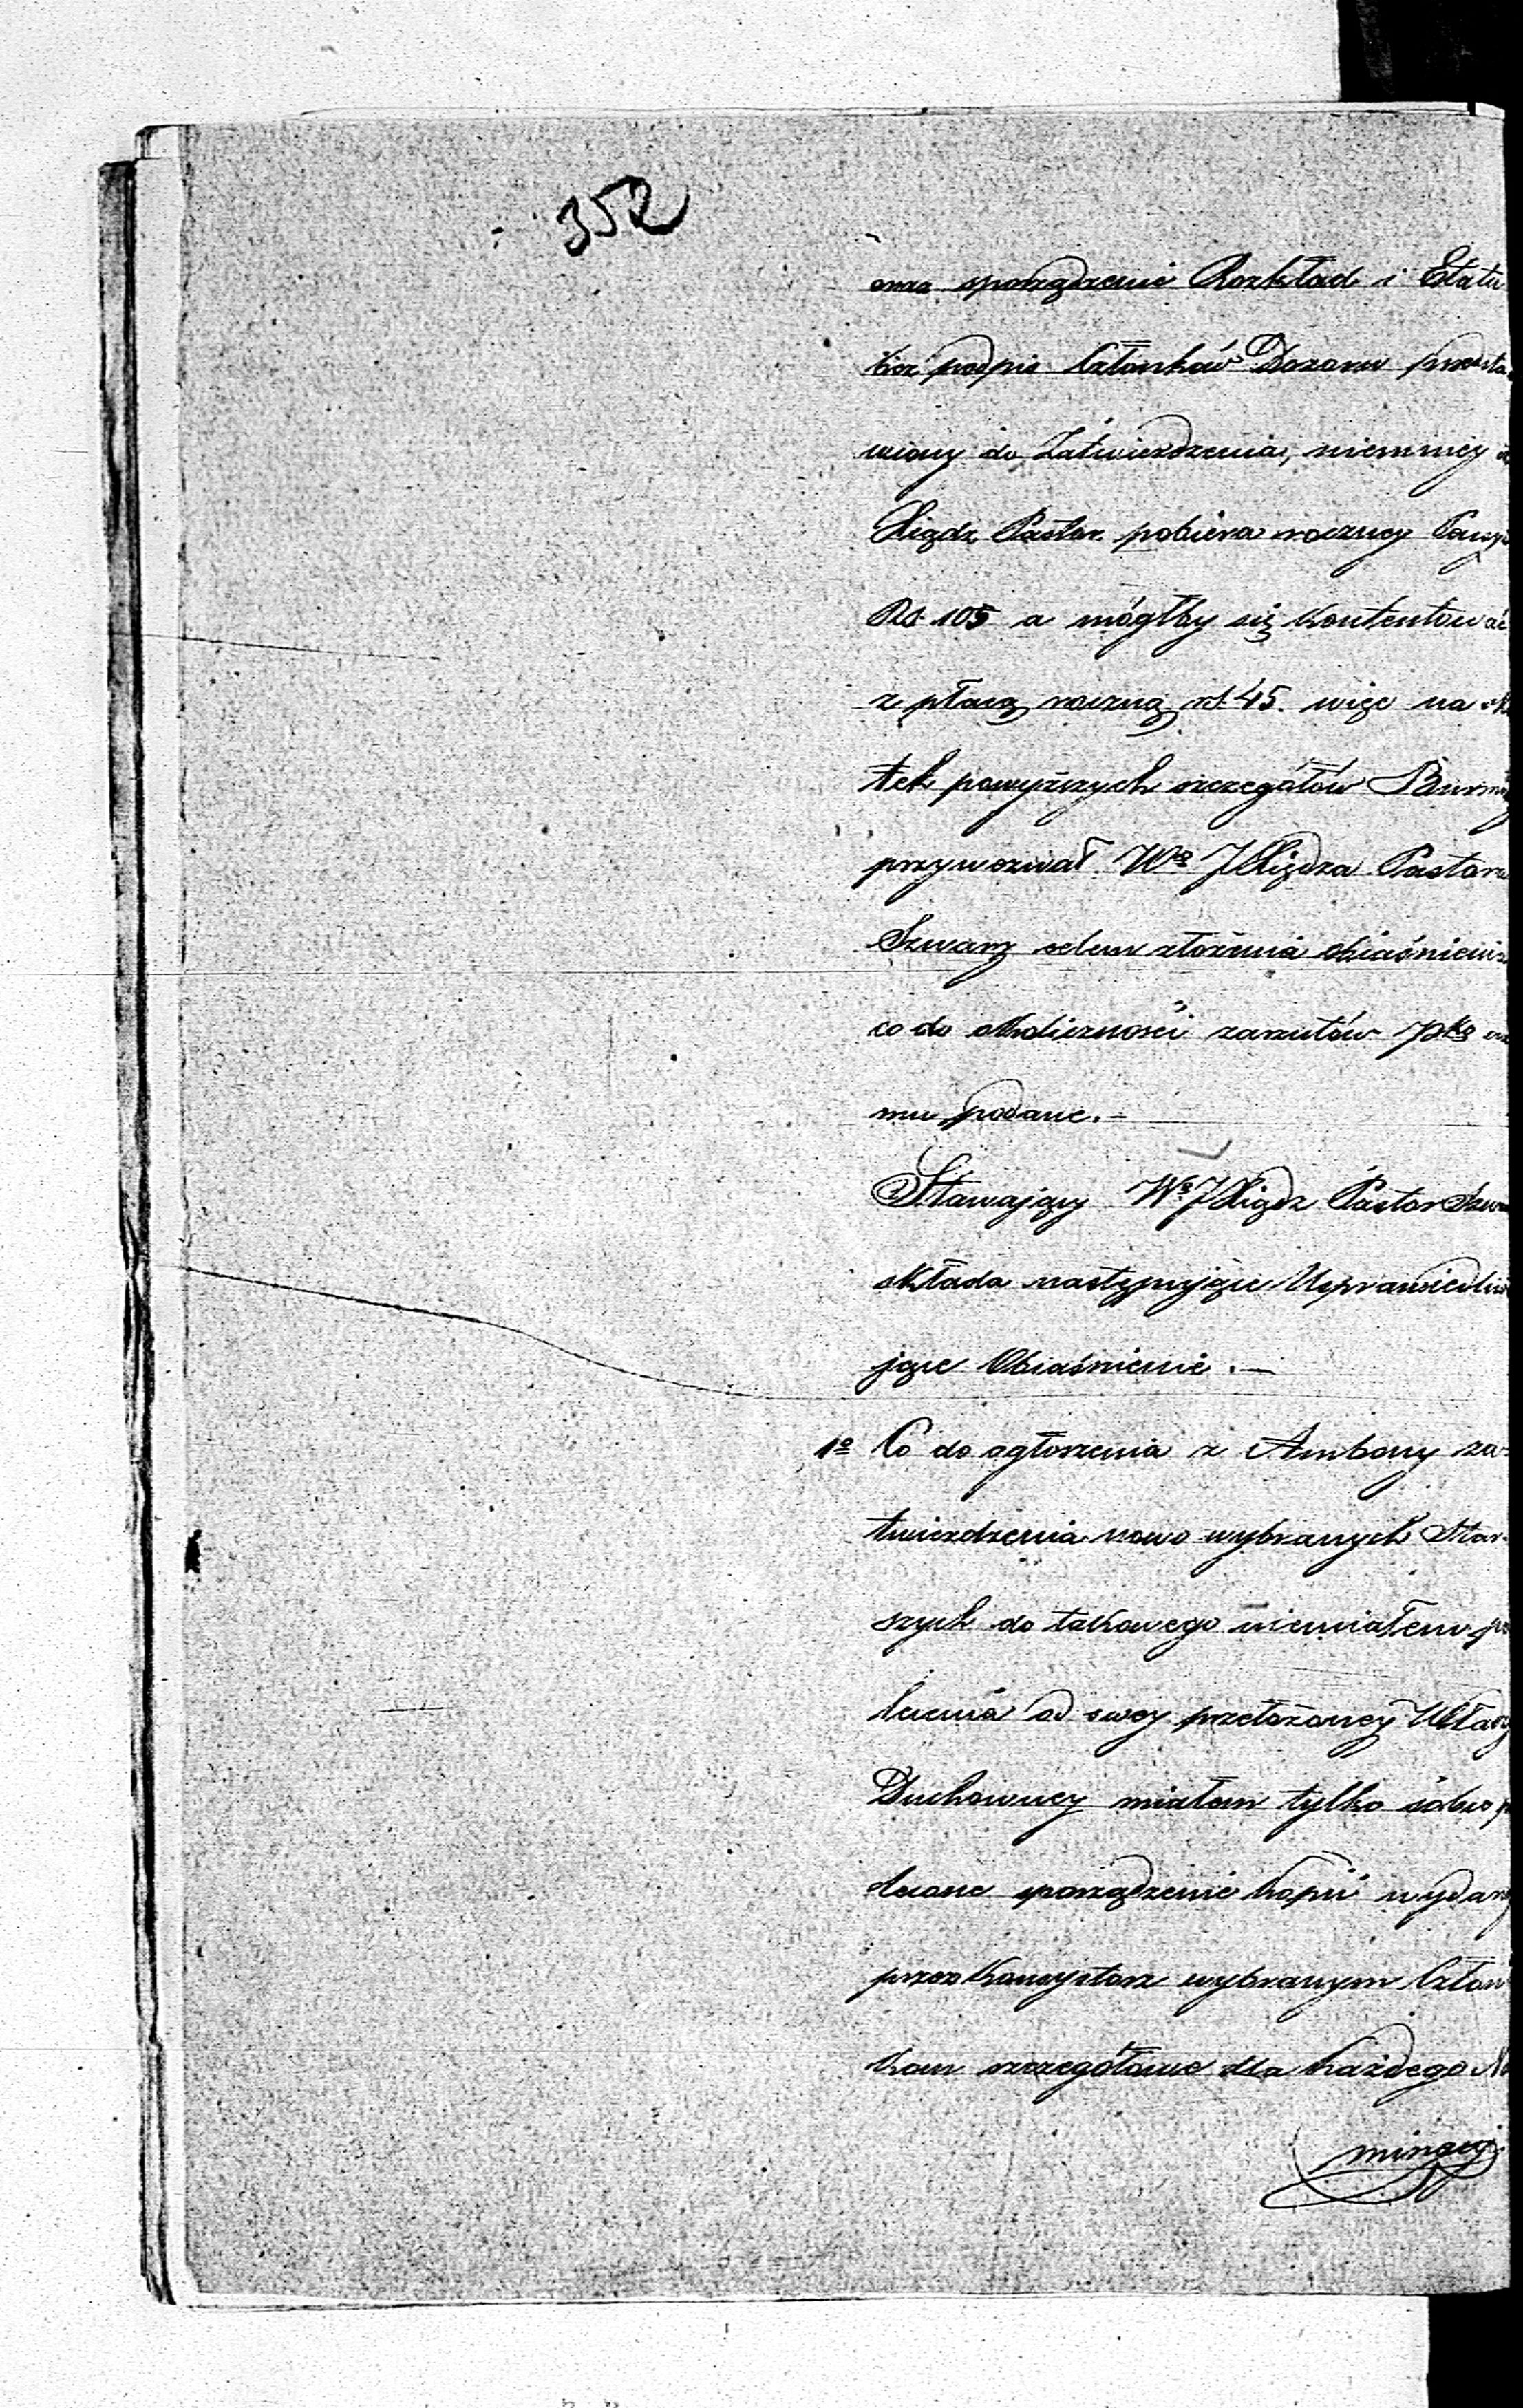 352
oraz sporządzenie Rozkład i Etatu
bez podpis Członków Dozoru przedsta
wiony do Zatwierdzenia, niemniej
Xiądz Pastor pobiera roczney Pensyi
Rs. 105 a mógłby się kontentować
z płacą roczną rs. 45. więc na
tek powyższych szczegółów Burmi
przywozwał Wo JXiędza Pastora
Szwarz celem złożenia obiaśnienia
co do okoliczności zarzutów
mu podane.–
Stawający Wy JXiądz Pastor Szwa
składa następujące Usprawiedliwia
jące Obiaśnienie.–
1o Co do ogłoszenia z Ambony za-
twierdzenia nowo wybranych Star-
szych do takowego niemiałem po
lecenia od swey przełożoney Władzy
Duchowney miałem tylko sobie po
lecone sporządzenie kopii wydany
przez Konsystorz wybranym Człon
kom szczegółowie dla każdego No
minacyi